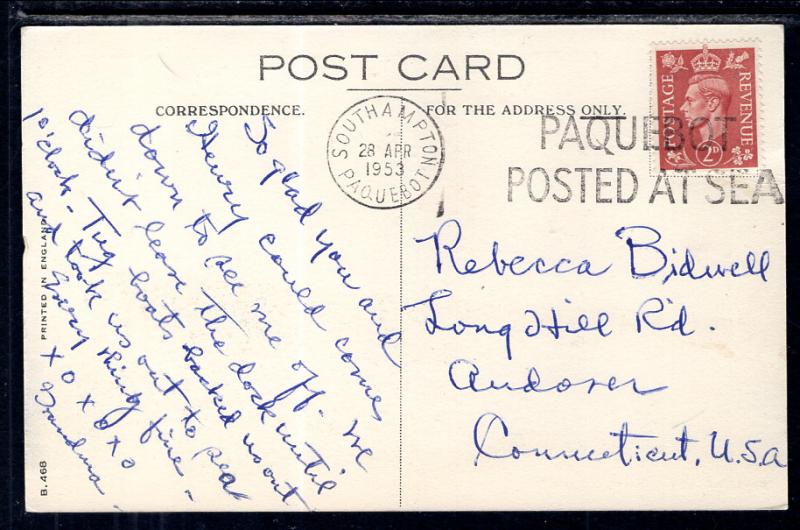 POST CARD
CORRESPONDENCE.
FOR THE ADDRESS ONLY.
SOUTHAMPTON
28 APR
1953
PAQUEBOT
PAQUEBOT
POSTED AT SEA
POSTAGE
REVENUE
2D
So glad you and
Henry could come
down to see me off - We
didn't leave the dock until
1 o'clock - Tug boats backed us out
and took us out to sea
Every thing fine -
X O X O X O
Grandma -
Rebecca Bidwell
Long Hill Rd.
Andover
Connecticut, U.S.A
PRINTED IN ENGLAND
B. 468